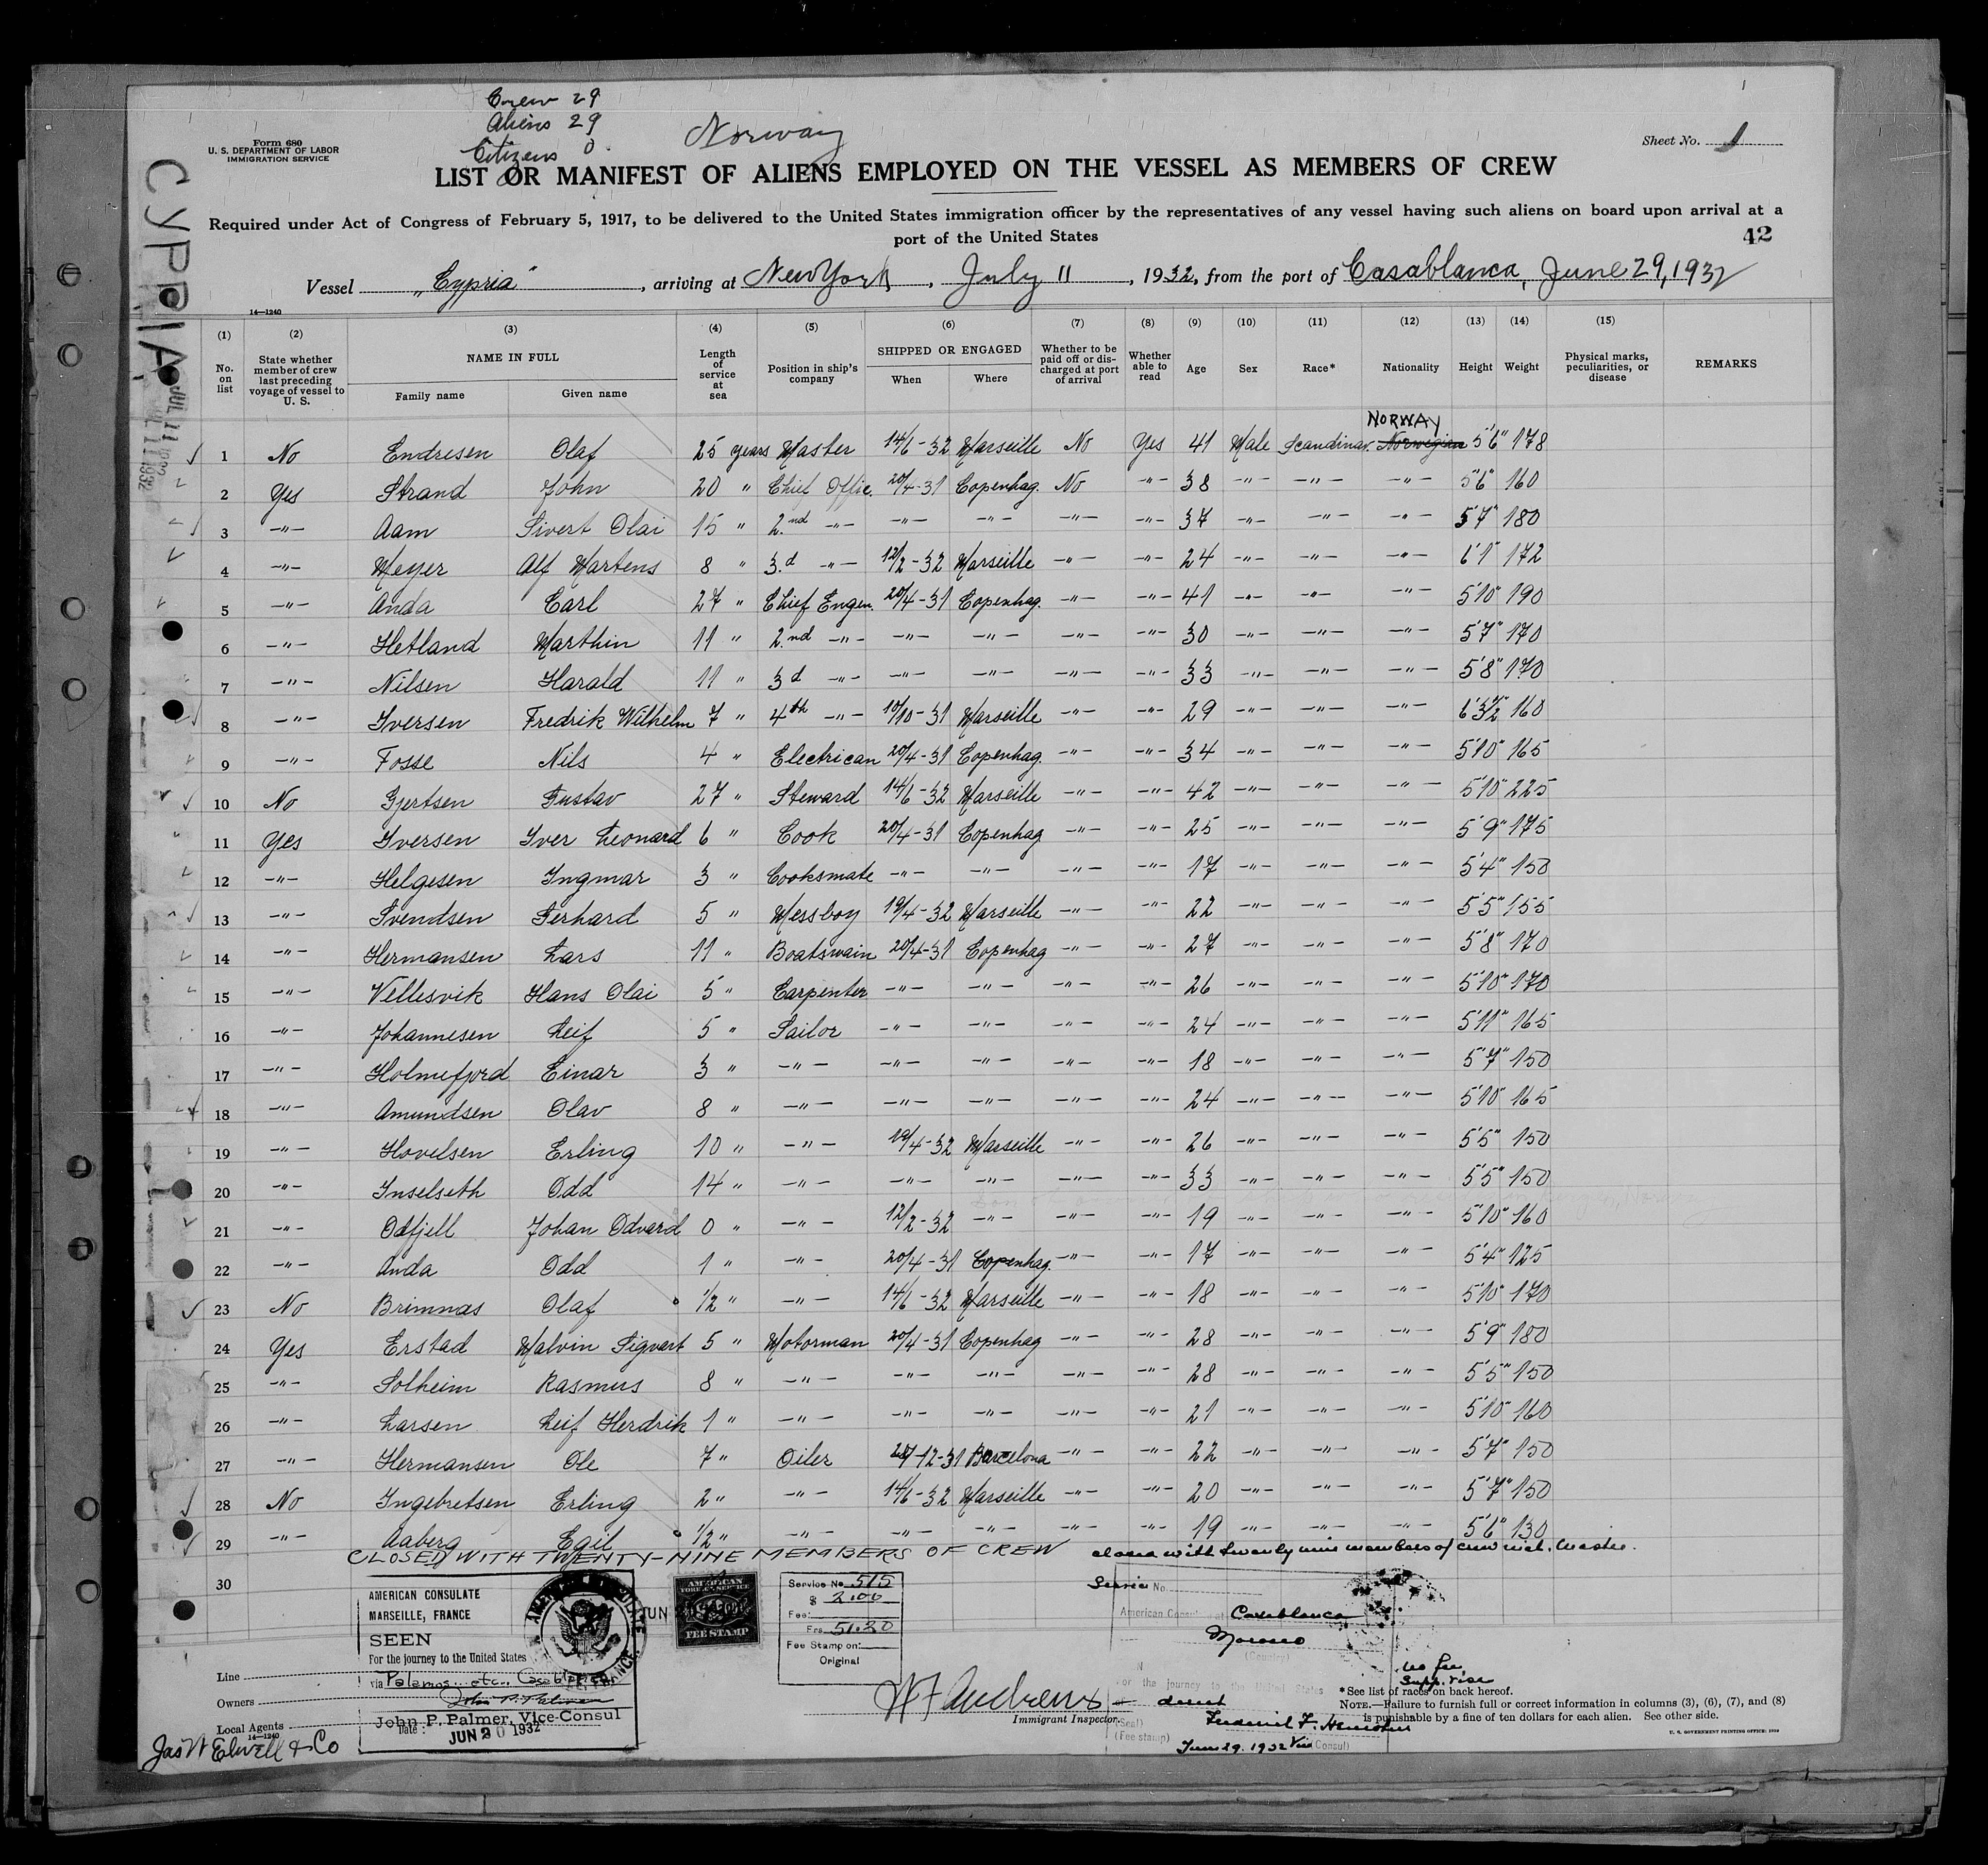 1
Crew 29
Aliens 29
Citizens 0
Norway
Form 680
U. S. DEPARTMENT OF LABOR
IMMIGRATION SERVICE
Sheet No. 1
LIST OR MANIFEST OF ALIENS EMPLOYED ON THE VESSEL AS MEMBERS OF CREW
Required under Act of Congress of February 5, 1917, to be delivered to the United States immigration officer by the representatives of any vessel having such aliens on board upon arrival at a
port of the United States
42
CYPRIA
JUL 11 1932
Vessel "Cypria", arriving at New York, July 11, 1932, from the port of Casablanca, June 29, 1932
14—1240
(1) (2) (3) (4) (5) (6) (7) (8) (9) (10) (11) (12) (13) (14) (15)
No. on list | State whether member of crew last preceding voyage of vessel to U. S. | NAME IN FULL | Family name | Given name | Length of service at sea | Position in ship's company | SHIPPED OR ENGAGED | When | Where | Whether to be paid off or discharged at port of arrival | Whether able to read | Age | Sex | Race* | Nationality | Height | Weight | Physical marks, peculiarities, or disease | REMARKS
NORWAY
1 No Endresen Olaf 25 years Master 14/6-32 Marseille No Yes 41 Male Scandinav. Norwegian 5'6" 178
2 Yes Strand John 20 " Chief Offic. 20/4-31 Copenhag. No -"- 38 -"- -"- -"- 5'6" 160
3 -"- Aam Sivert Olai 15 " 2.nd -"- -"- -"- -"- -"- 37 -"- -"- -"- 5'7" 180
4 -"- Meyer Alf Martens 8 " 3.d -"- 12/2-32 Marseille -"- -"- 24 -"- -"- -"- 6'1" 172
5 -"- Anda Carl 27 " Chief Engen. 20/4-31 Copenhag. -"- -"- 41 -"- -"- -"- 5'10" 190
6 -"- Hetland Marthin 11 " 2.nd -"- -"- -"- -"- -"- 30 -"- -"- -"- 5'7" 170
7 -"- Nilsen Harald 11 " 3d -"- -"- -"- -"- -"- 33 -"- -"- -"- 5'8" 170
8 -"- Iversen Fredrik Wilhelm 7 " 4th -"- 10/10-31 Marseille -"- -"- 29 -"- -"- -"- 6'3½" 160
9 -"- Fosse Nils 4 " Electrican 20/4-31 Copenhag. -"- -"- 34 -"- -"- -"- 5'10" 165
10 No Gjertsen Gustav 27 " Steward 14/6-32 Marseille -"- -"- 42 -"- -"- -"- 5'10" 225
11 Yes Iversen Iver Leonard 6 " Cook 20/4-31 Copenhag -"- -"- 25 -"- -"- -"- 5'9" 175
12 -"- Helgesen Ingmar 3 " Cooksmate -"- -"- -"- -"- 17 -"- -"- -"- 5'4" 150
13 -"- Svendsen Gerhard 5 " Messboy 19/4-32 Marseille -"- -"- 22 -"- -"- -"- 5'5" 155
14 -"- Hermansen Lars 11 " Boatswain 20/4-31 Copenhag -"- -"- 27 -"- -"- -"- 5'8" 170
15 -"- Vellesvik Hans Olai 5 " Carpenter -"- -"- -"- -"- 26 -"- -"- -"- 5'10" 170
16 -"- Johannesen Leif 5 " Sailor -"- -"- -"- -"- 24 -"- -"- -"- 5'11" 165
17 -"- Holmefjord Einar 3 " -"- -"- -"- -"- -"- 18 -"- -"- -"- 5'7" 150
18 -"- Amundsen Olav 8 " -"- -"- -"- -"- -"- 24 -"- -"- -"- 5'10" 165
19 -"- Hovelsen Erling 10 " -"- 19/4-32 Marseille -"- -"- 26 -"- -"- -"- 5'5" 150
20 -"- Inselseth Odd 14 " -"- -"- -"- -"- -"- 33 -"- -"- -"- 5'5" 150
21 -"- Odfjell Johan Odvard 0 " -"- 12/2-32 -"- -"- -"- 19 -"- -"- -"- 5'10" 160
22 -"- Anda Odd 1 " -"- 20/4-31 Copenhag. -"- -"- 17 -"- -"- -"- 5'4" 125
23 No Brimnas Olaf ½ " -"- 14/6-32 Marseille -"- -"- 18 -"- -"- -"- 5'10" 170
24 Yes Erstad Malvin Sigvart 5 " Motorman 20/4-31 Copenhag -"- -"- 28 -"- -"- -"- 5'9" 180
25 -"- Solheim Rasmus 8 " -"- -"- -"- -"- -"- 28 -"- -"- -"- 5'5" 150
26 -"- Larsen Leif Herdrik 1 " -"- -"- -"- -"- -"- 21 -"- -"- -"- 5'10" 160
27 -"- Hermansen Ole 7 " Oiler 27-12-31 Barcelona -"- -"- 22 -"- -"- -"- 5'7" 150
28 No Ingebretsen Erling 2 " -"- 14/6-32 Marseille -"- -"- 20 -"- -"- -"- 5'7" 150
29 -"- Aaberg Egil ½ " -"- -"- -"- -"- -"- 19 -"- -"- -"- 5'6" 130
CLOSED WITH TWENTY-NINE MEMBERS OF CREW closed with twenty nine members of crew incl. Master.
30
AMERICAN CONSULATE
MARSEILLE, FRANCE
SEEN
For the journey to the United States
via Palamos etc. Casablanca
John P. Palmer
John P. Palmer, Vice-Consul
Date: JUN 20 1932
AMERICAN
FOREIGN SERVICE
FEE STAMP
Service No. 515
$ 2.00
Fee:
Frs 51.20
Fee Stamp on:
Original
Service No.
American Consul at Casablanca
Morocco
(Country)
For the journey to the United States
direct
(Seal)
(Fee stamp)
June 29. 1932 Vice Consul
No fee
Supp. visa
Line
Owners
Local Agents
14—1240
Jas W Elwell & Co
W F Andrews
Immigrant Inspector.
*See list of races on back hereof.
NOTE.—Failure to furnish full or correct information in columns (3), (6), (7), and (8)
is punishable by a fine of ten dollars for each alien. See other side.
U. S. GOVERNMENT PRINTING OFFICE: